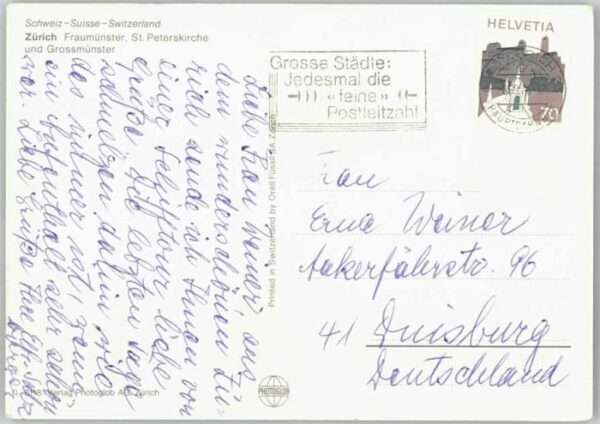 Schweiz–Suisse–Switzerland
Zürich Fraumünster, St. Peterskirche
und Grossmünster
HELVETIA
70
Grosse Städte:
Jedesmal die
«feine»
Postleitzahl
Liebe Frau Weiner, aus
dem wunderschönen Zü-
rich sende ich Ihnen von
einer
liebe
Grüße. Die letzten Tage
dahin wie
das immer ist, wenn
ein Aufenthalt sehr schön
war. Liebe Grüße Ihre
Frau
Erna Weiner
Ackerfährstr. 96
41 Duisburg
Deutschland
Printed in Switzerland by Orell Füssli AG Zürich
Verlag Photoglob AG, Zürich
PHOTOGLOB